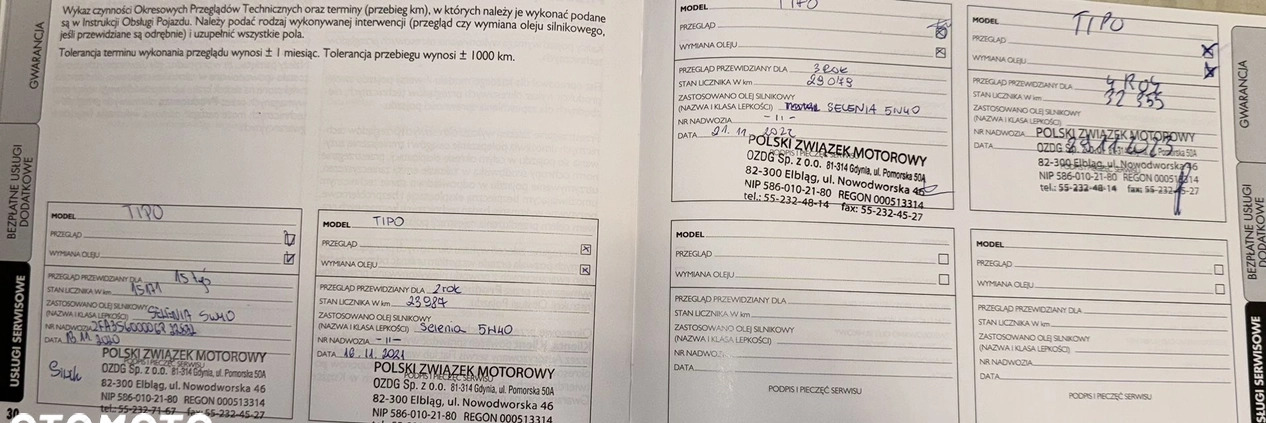 GWARANCJA
BEZPŁATNE USŁUGI
DODATKOWE
USŁUGI SERWISOWE
Wykaz czynności Okresowych Przeglądów Technicznych oraz terminy (przebieg km), w których należy je wykonać podane
są w Instrukcji Obsługi Pojazdu. Należy podać rodzaj wykonywanej interwencji (przegląd czy wymiana oleju silnikowego,
jeśli przewidziane są odrębnie) i uzupełnić wszystkie pola.
Tolerancja terminu wykonania przeglądu wynosi ± 1 miesiąc. Tolerancja przebiegu wynosi ± 1000 km.
MODEL TIPO
PRZEGLĄD
WYMIANA OLEJU
PRZEGLĄD PRZEWIDZIANY DLA
STAN LICZNIKA W km 15171
ZASTOSOWANO OLEJ SILNIKOWY
(NAZWA I KLASA LEPKOŚCI) SELENIA 5W40
NR NADWOZIA
DATA 18.11.2020
POLSKI ZWIĄZEK MOTOROWY
OZDG Sp. z o.o. 81-314 Gdynia, ul. Pomorska 50A
82-300 Elbląg, ul. Nowodworska 46
NIP 586-010-21-80 REGON 000513314
tel.: 55-232-71-67 fax: 55-232-45-27
30
OTOMOTO
MODEL TIPO
PRZEGLĄD
WYMIANA OLEJU
PRZEGLĄD PRZEWIDZIANY DLA 2 rok
STAN LICZNIKA W km 23987
ZASTOSOWANO OLEJ SILNIKOWY
(NAZWA I KLASA LEPKOŚCI) Selenia 5W40
NR NADWOZIA -II-
DATA 16.11.2021
POLSKI ZWIĄZEK MOTOROWY
PODPIS I PIECZĘĆ SERWISU
OZDG Sp. z o.o. 81-314 Gdynia, ul. Pomorska 50A
82-300 Elbląg, ul. Nowodworska 46
NIP 586-010-21-80 REGON 000513314
MODEL TIPO
PRZEGLĄD
WYMIANA OLEJU
PRZEGLĄD PRZEWIDZIANY DLA 3 Rok
STAN LICZNIKA W km 29079
ZASTOSOWANO OLEJ SILNIKOWY
(NAZWA I KLASA LEPKOŚCI) SELENIA 5W40
NR NADWOZIA -II-
DATA 21.11.2022
POLSKI ZWIĄZEK MOTOROWY
PODPIS I PIECZĘĆ SERWISU
OZDG Sp. z o.o. 81-314 Gdynia, ul. Pomorska 50A
82-300 Elbląg, ul. Nowodworska 46
NIP 586-010-21-80 REGON 000513314
tel.: 55-232-48-14 fax: 55-232-45-27
MODEL TIPO
PRZEGLĄD
WYMIANA OLEJU
PRZEGLĄD PRZEWIDZIANY DLA 4 ROK
STAN LICZNIKA W km 32 355
ZASTOSOWANO OLEJ SILNIKOWY
(NAZWA I KLASA LEPKOŚCI)
NR NADWOZIA
DATA 29.11.2023
POLSKI ZWIĄZEK MOTOROWY
OZDG Sp. z o.o. 81-314 Gdynia, ul. Pomorska 50A
82-300 Elbląg, ul. Nowodworska 46
NIP 586-010-21-80 REGON 000513314
tel.: 55-232-48-14 fax: 55-232-45-27
MODEL
PRZEGLĄD
WYMIANA OLEJU
PRZEGLĄD PRZEWIDZIANY DLA
STAN LICZNIKA W km
ZASTOSOWANO OLEJ SILNIKOWY
(NAZWA I KLASA LEPKOŚCI)
NR NADWOZIA
DATA
PODPIS I PIECZĘĆ SERWISU
MODEL
PRZEGLĄD
WYMIANA OLEJU
PRZEGLĄD PRZEWIDZIANY DLA
STAN LICZNIKA W km
ZASTOSOWANO OLEJ SILNIKOWY
(NAZWA I KLASA LEPKOŚCI)
NR NADWOZIA
DATA
PODPIS I PIECZĘĆ SERWISU
GWARANCJA
BEZPŁATNE USŁUGI
DODATKOWE
USŁUGI SERWISOWE